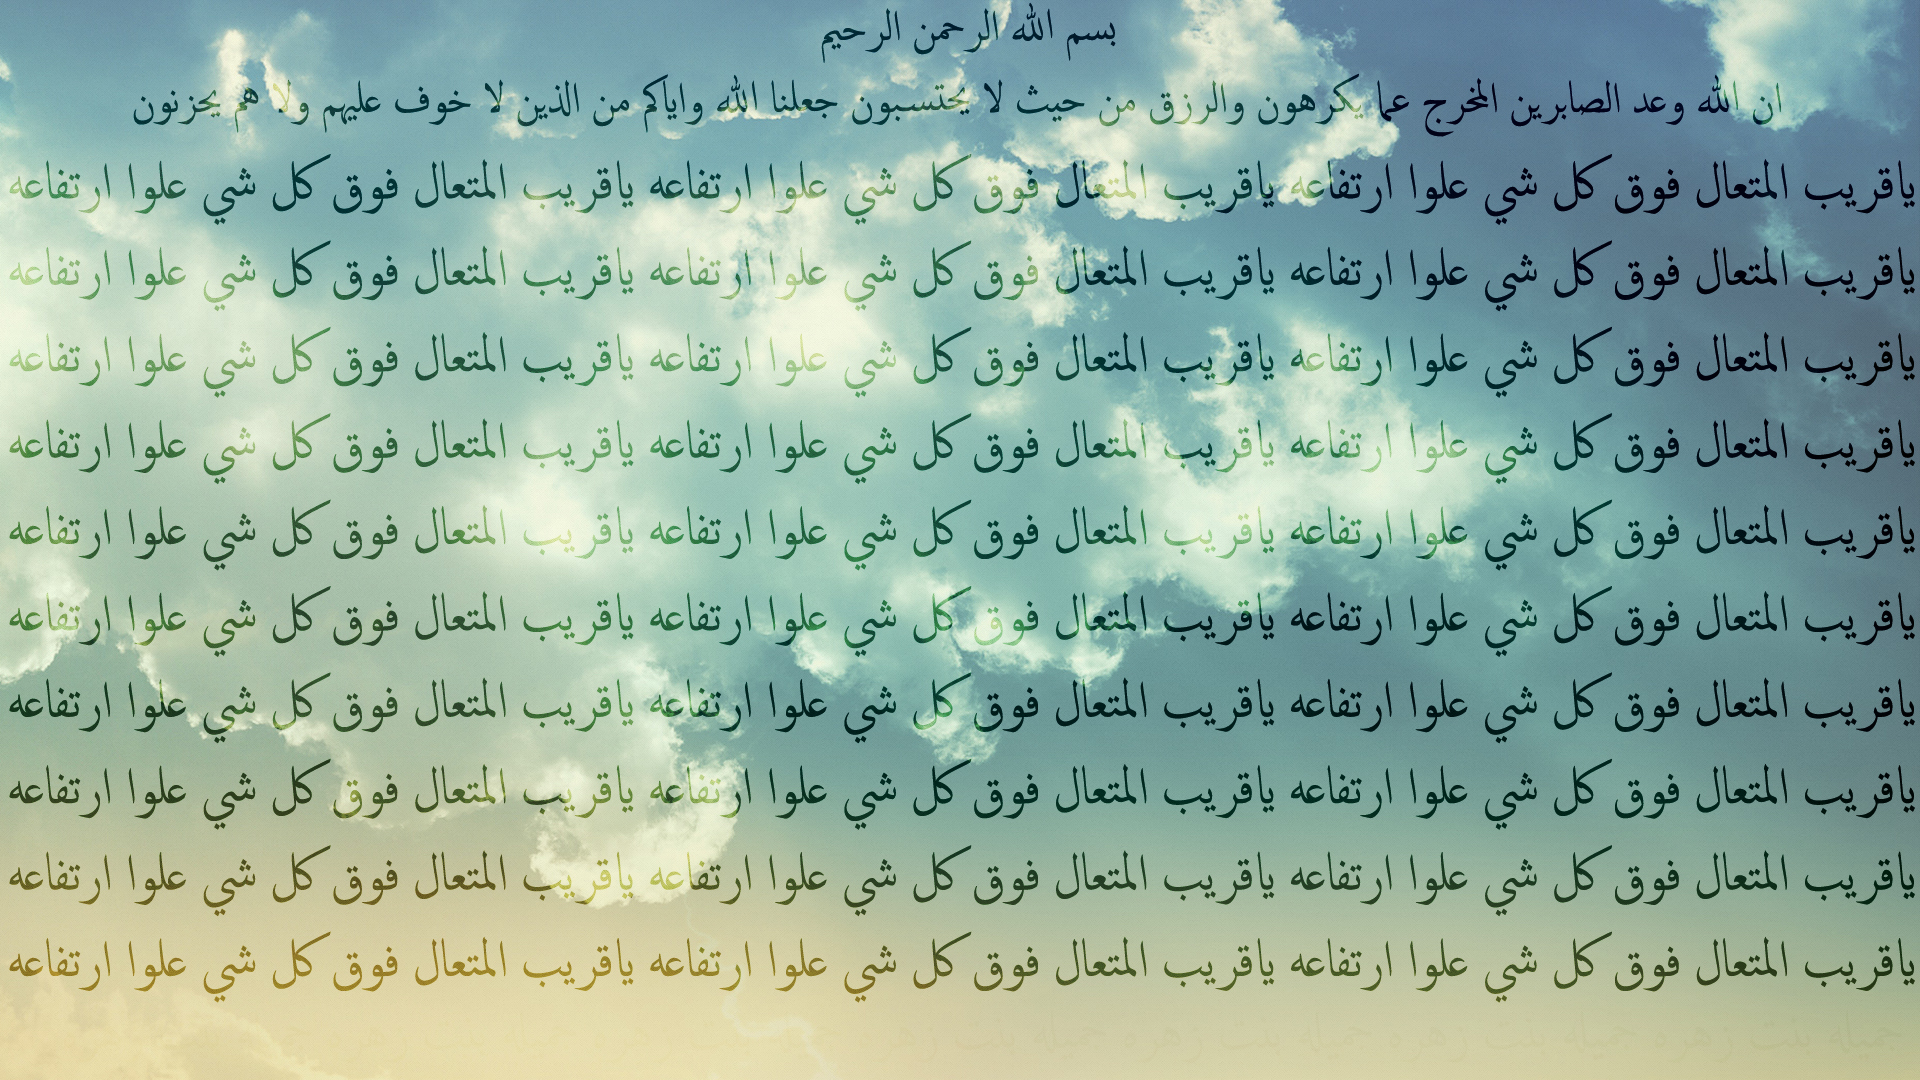 بسم الله الرحمن الرحيم
ان الله وعد الصابرين المخرج عما يكرهون والرزق من حيث لا يحتسبون جعلنا الله واياكم من الذين لا خوف عليهم ولا هم يحزنون
ياقريب المتعال فوق كل شي علوا ارتفاعه ياقريب المتعال فوق كل شي علوا ارتفاعه ياقريب المتعال فوق كل شي علوا ارتفاعه
ياقريب المتعال فوق كل شي علوا ارتفاعه ياقريب المتعال فوق كل شي علوا ارتفاعه ياقريب المتعال فوق كل شي علوا ارتفاعه
ياقريب المتعال فوق كل شي علوا ارتفاعه ياقريب المتعال فوق كل شي علوا ارتفاعه ياقريب المتعال فوق كل شي علوا ارتفاعه
ياقريب المتعال فوق كل شي علوا ارتفاعه ياقريب المتعال فوق كل شي علوا ارتفاعه ياقريب المتعال فوق كل شي علوا ارتفاعه
ياقريب المتعال فوق كل شي علوا ارتفاعه ياقريب المتعال فوق كل شي علوا ارتفاعه ياقريب المتعال فوق كل شي علوا ارتفاعه
ياقريب المتعال فوق كل شي علوا ارتفاعه ياقريب المتعال فوق كل شي علوا ارتفاعه ياقريب المتعال فوق كل شي علوا ارتفاعه
ياقريب المتعال فوق كل شي علوا ارتفاعه ياقريب المتعال فوق كل شي علوا ارتفاعه ياقريب المتعال فوق كل شي علوا ارتفاعه
ياقريب المتعال فوق كل شي علوا ارتفاعه ياقريب المتعال فوق كل شي علوا ارتفاعه ياقريب المتعال فوق كل شي علوا ارتفاعه
ياقريب المتعال فوق كل شي علوا ارتفاعه ياقريب المتعال فوق كل شي علوا ارتفاعه ياقريب المتعال فوق كل شي علوا ارتفاعه
ياقريب المتعال فوق كل شي علوا ارتفاعه ياقريب المتعال فوق كل شي علوا ارتفاعه ياقريب المتعال فوق كل شي علوا ارتفاعه
جميله بنت زهره جميله بنت زهره جميله بنت زهره جميله بنت زهره